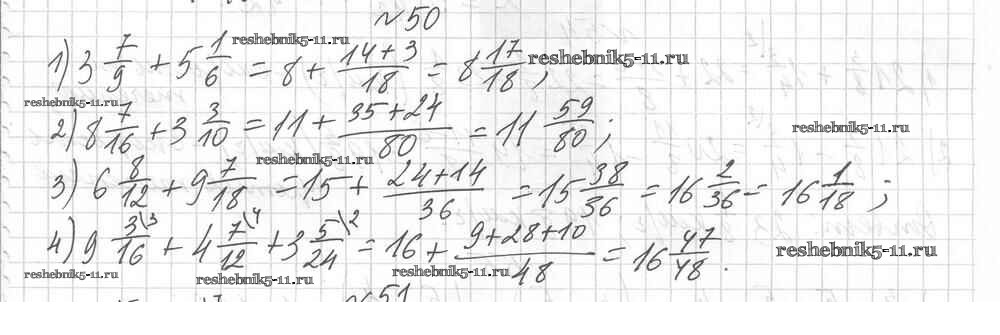 №50
1) 3 7/9 + 5 1/6 = 8 + (14+3)/18 = 8 17/18;
reshebnik5-11.ru
reshebnik5-11.ru
reshebnik5-11.ru
2) 8 7/16 + 3 3/10 = 11 + (35+24)/80 = 11 59/80;
reshebnik5-11.ru
reshebnik5-11.ru
3) 6 8/12 + 9 7/18 = 15 + (24+14)/36 = 15 38/36 = 16 2/36 = 16 1/18;
4) 9 3\3/16 + 4 7\4/12 + 3 5\2/24 = 16 + (9+28+10)/48 = 16 47/48.
reshebnik5-11.ru
reshebnik5-11.ru
reshebnik5-11.ru
reshebnik5-11.ru
№51